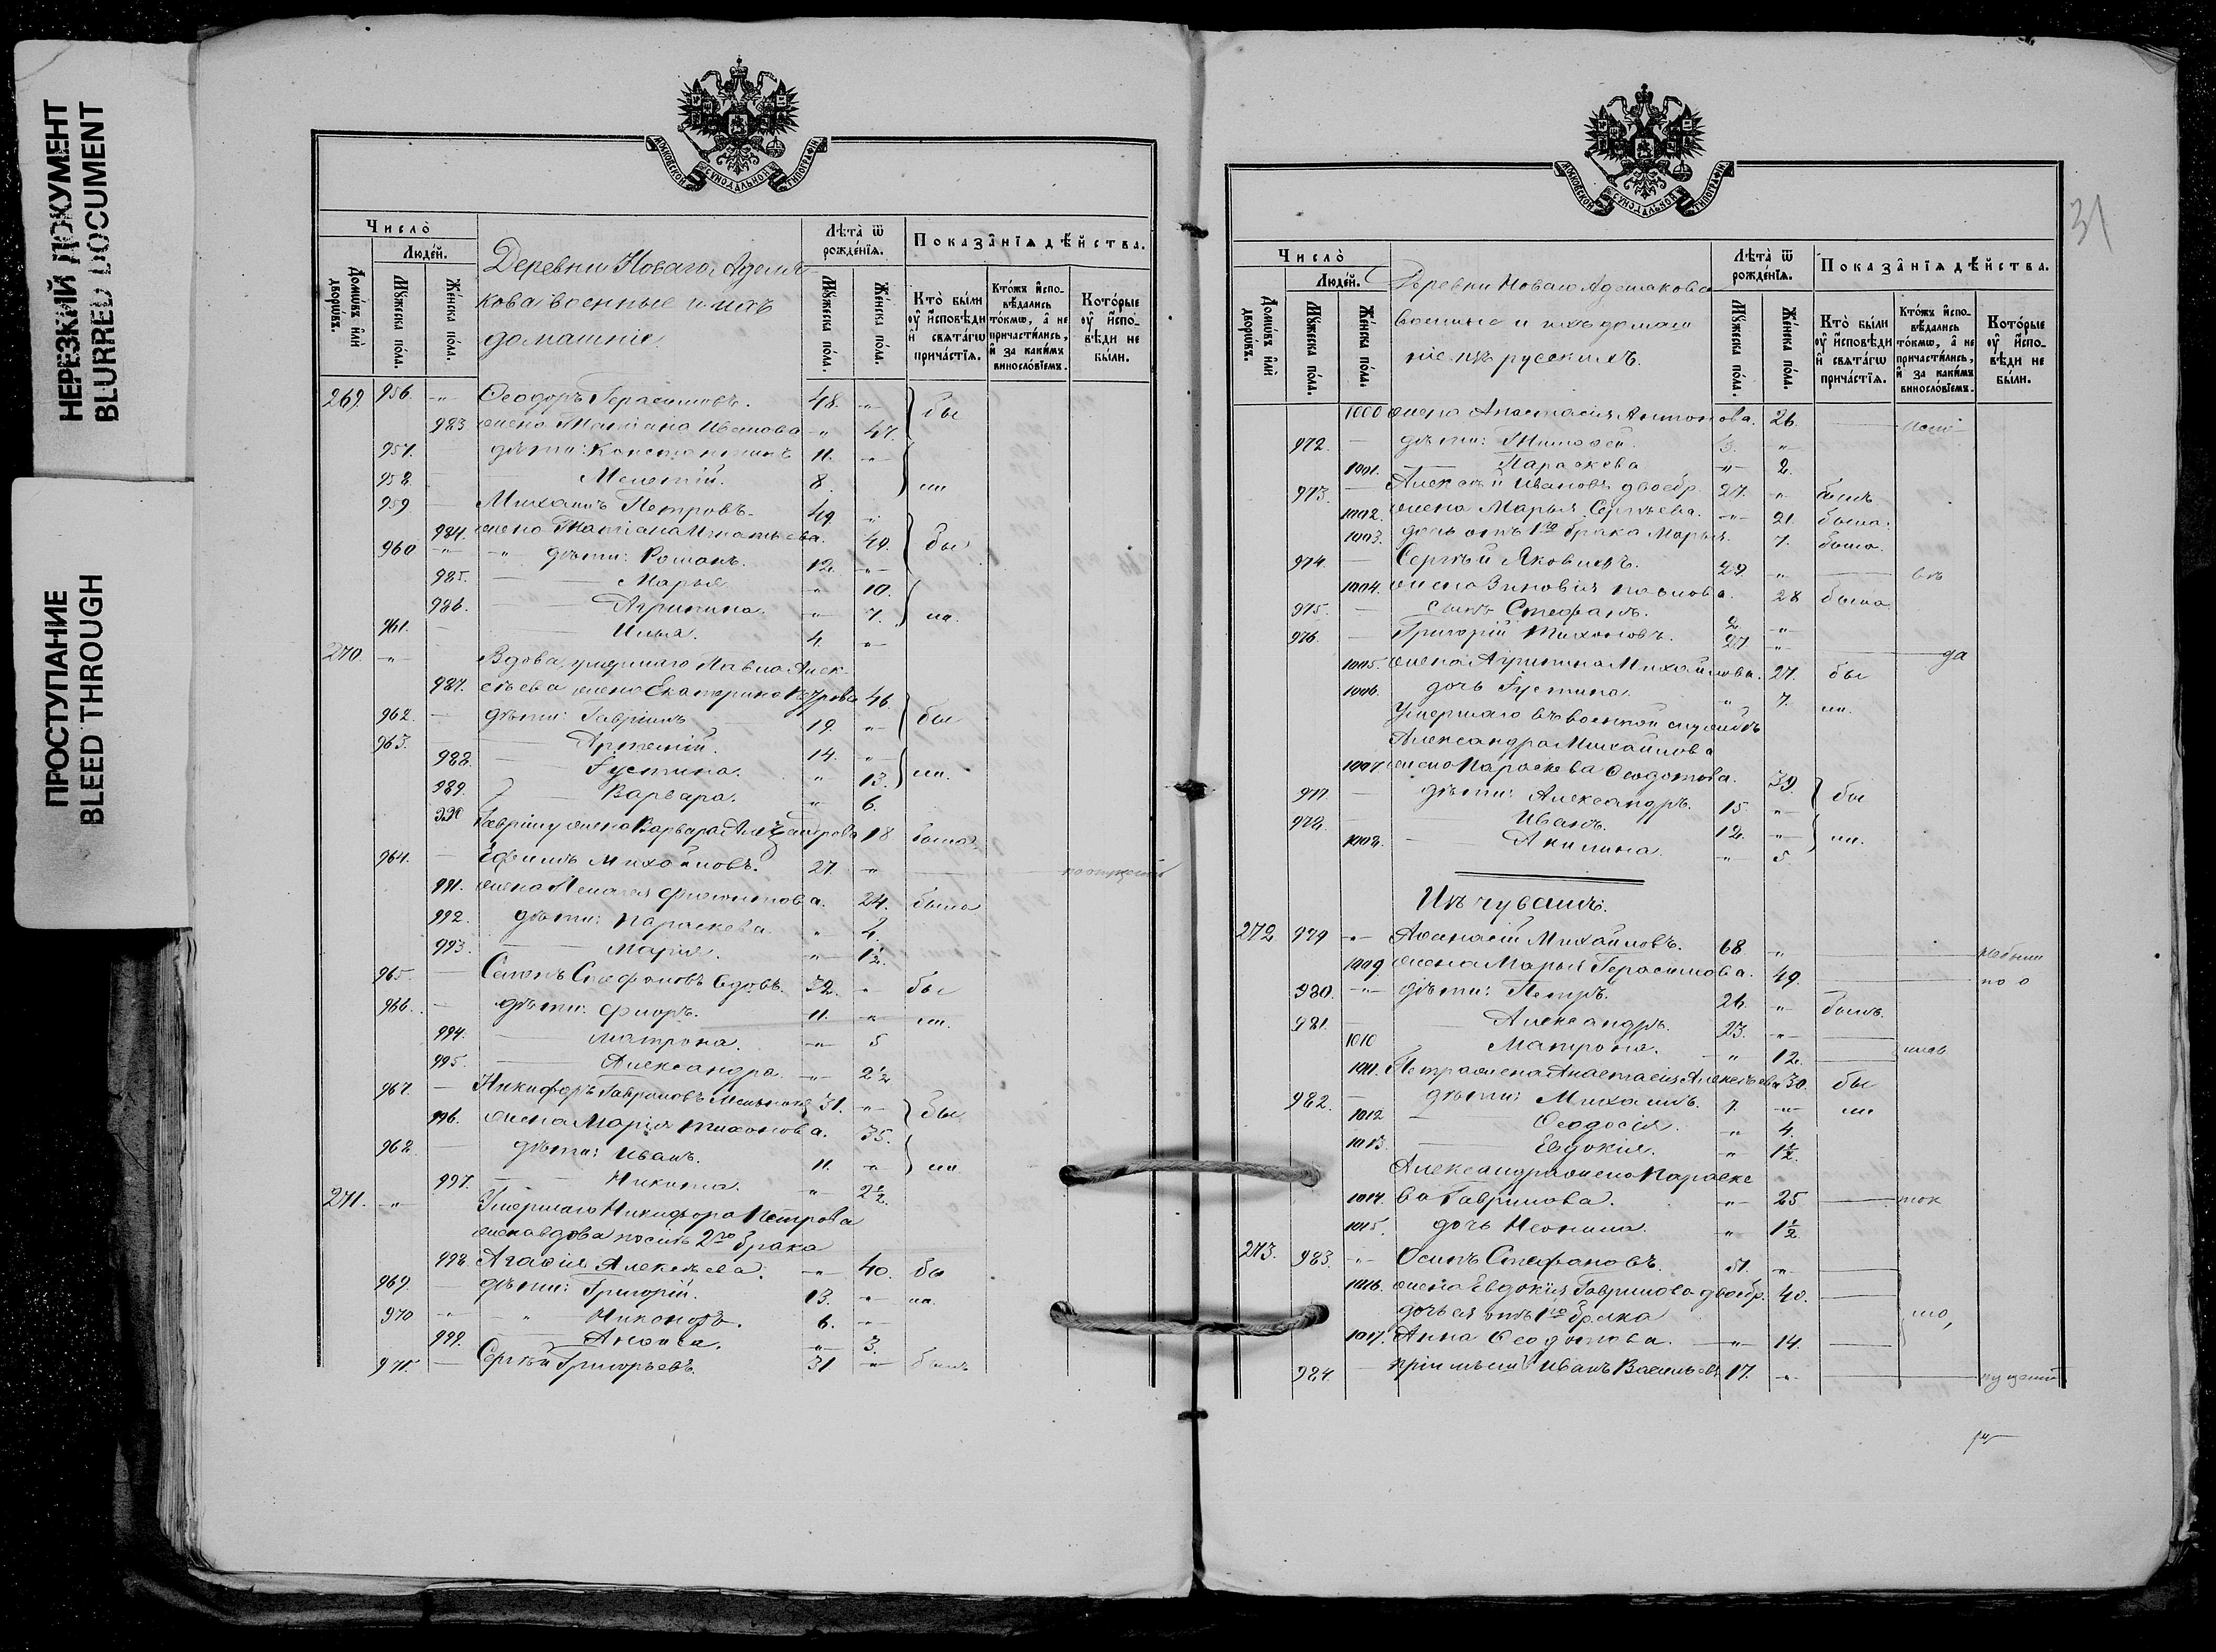 НЕРЕЗКИЙ ДОКУМЕНТ
BLURRED DOCUMENT
ПРОСТУПАНИЕ
BLEED THROUGH
МОСКОВСКОЙ СѴНОДАЛЬНОЙ ТИПОГРАФІИ
Число̀
Люде́й.
Домѡ́въ и҆лѝ дворѡ́въ.
Мꙋ́жеска по́ла.
Же́нска по́ла.
Деревни Новаго Адема
кова военные и ихъ
домашніе
Лѣ́та ѿ рожде́нїѧ.
Мꙋ́жеска по́ла.
Же́нска по́ла.
Показа̂нїѧ дѣ́йства.
Кто̀ бы́ли оу҆ и҆сповѣ́ди и҆ свѧта́гѡ прича́стїѧ.
Кто́жъ и҆спо- вѣ́дались то́кмѡ, а҆ не причасти́лись, и҆ за каки́мъ винослові́емъ.
Кото́рые оу҆ и҆спо- вѣ́ди не бы́ли.
269. 956. -„- Ѳеодоръ Герасимовъ. 48. -„- бы
983 жена Татіана Иванова -„- 47.
957. дѣти: Константинъ 11. -„-
958. Мелетій. 8. ли
959 Михаилъ Петровъ. 49. -„-
984. жена Татіана Игнатьева. 49. бы
960 -„- „ дѣти: Романъ. 12. -„-
985. Марья „ 10.
986. Агрипина. -„- 7. ли.
961. Илья. 4. -„-
270. -„- Вдова, умершаго Павла Алек
987. сѣева жена Екатерина 46
962. дѣти: Гавріилъ 19. -„- бы
963. Артемій. 14. -„-
988. Іустина. „ 13. ли.
989. Варвара. „ 6.
990 Гавріилу жена Варвара Александрова 18 была.
964. Ефимъ Михайловъ. 27. -„-
991. жена Пелагея Филиппова. 24. была
992. дѣти: Параскева. „ 4.
993. Марія. -„- 1½.
965. Семенъ Стефановъ вдовъ. 32. „ бы
966. дѣти: Флоръ. 11. -„- ли.
994. Матрона. -„- 5
995. Александра. -„- 2½
967. Никифоръ Гавриловъ 31. -„- бы
996. жена Марія Тихонова. 35.
968. дѣти: Иванъ. 11. -„- ли
997. Никита. „ 2½.
271. -„- Умершаго Никифора Петрова
жена вдова послѣ 2го брака
998. Агаѳія Алексѣева. -„- 40. бы
969. дѣти: Григорій. 13. -„- ли.
970 -„- „ Никоноръ. 6. -„-
999. -„- 3.
971. Сергѣй Григорьевъ. 31 -„- былъ
31
МОСКОВСКОЙ СѴНОДАЛЬНОЙ ТИПОГРАФІИ
Число̀
Люде́й.
Домѡ́въ и҆лѝ дворѡ́въ.
Мꙋ́жеска по́ла.
Же́нска по́ла.
Деревни Новаго Адемакова
военные и ихъ домаш
ніе изъ русскихъ.
Лѣ́та ѿ рожде́нїѧ.
Мꙋ́жеска по́ла.
Же́нска по́ла.
Показа̂нїѧ дѣ́йства.
Кто̀ бы́ли оу҆ и҆сповѣ́ди и҆ свѧта́гѡ прича́стїѧ.
Кто́жъ и҆спо- вѣ́дались то́кмѡ, а҆ не причасти́лись, и҆ за каки́мъ винослові́емъ.
Кото́рые оу҆ и҆спо- вѣ́ди не бы́ли.
1000 жена Анастасія Антонова. 26.
972. дѣти: Тимоѳей. 3. „
1001. Параскева -„- 2.
973. Алексѣй Ивановъ двоебр. 27. -„- былъ
1002. жена Марья Сергѣева. -„- 21. была.
1003. дочь отъ 1го брака Марья. 7. была.
974. Сергѣй Яковлевъ. 29. „
1004. жена Зиновія Павлова. 28 была.
975. сынъ Стефанъ. 2. -„-
976. Григорій Тихоновъ. 27 -„- да
1005. жена Агрипина Михайлова. 27. бы
1006. дочь Іустина. „ 7. ли.
Умершаго въ военной службѣ
Александра Михайлова
1007. жена Параскева Ѳеодотова. 39. бы
977. дѣти: Александръ. 15. „
978. Иванъ. 12. -„- ли.
1008. Акилина. -„- 5
Изъ чувашъ.
272 979 -„- Аѳанасій Михайловъ. 68 „
1009. жена Марья Герасимова. 49.
980. -„- дѣти: Петръ. 26. „ былъ.
981. Александръ. 23. -„-
1010 Матрона. „ 12.
1011. Петра жена Анастасія Алексѣева 30. бы
982. дѣти: Михаилъ. 7. -„- ли
1012 Ѳеодосія. -„- 4.
1013. Евдокія. „ 1½.
Александра жена Параске
1014. ва Гаврилова. -„- 25
1015. дочь Неонила. „ 1½
273. 983. „ Осипъ Стефановъ. 51. „
1016. жена Евдокія Гаврилова двоебр. 40.
дочь ея отъ 1го брака
1017. Анна Ѳеодотова. -„- 14.
984. пріимышъ Иванъ Васильевъ 17. -„-